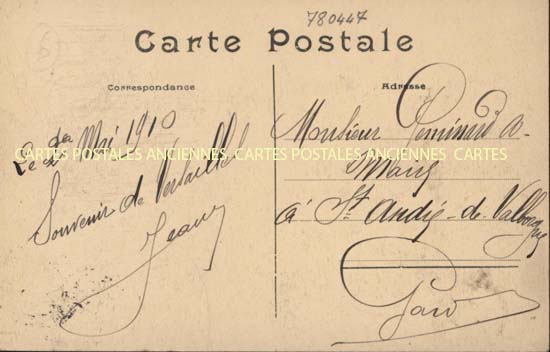 780447
Carte Postale
Correspondance
Adresse
Le Mai 1910
Souvenir de Versailles
Jean
Monsieur
à St André-de-Valborgne
Gard
CARTES POSTALES ANCIENNES CARTES POSTALES ANCIENNES CARTES